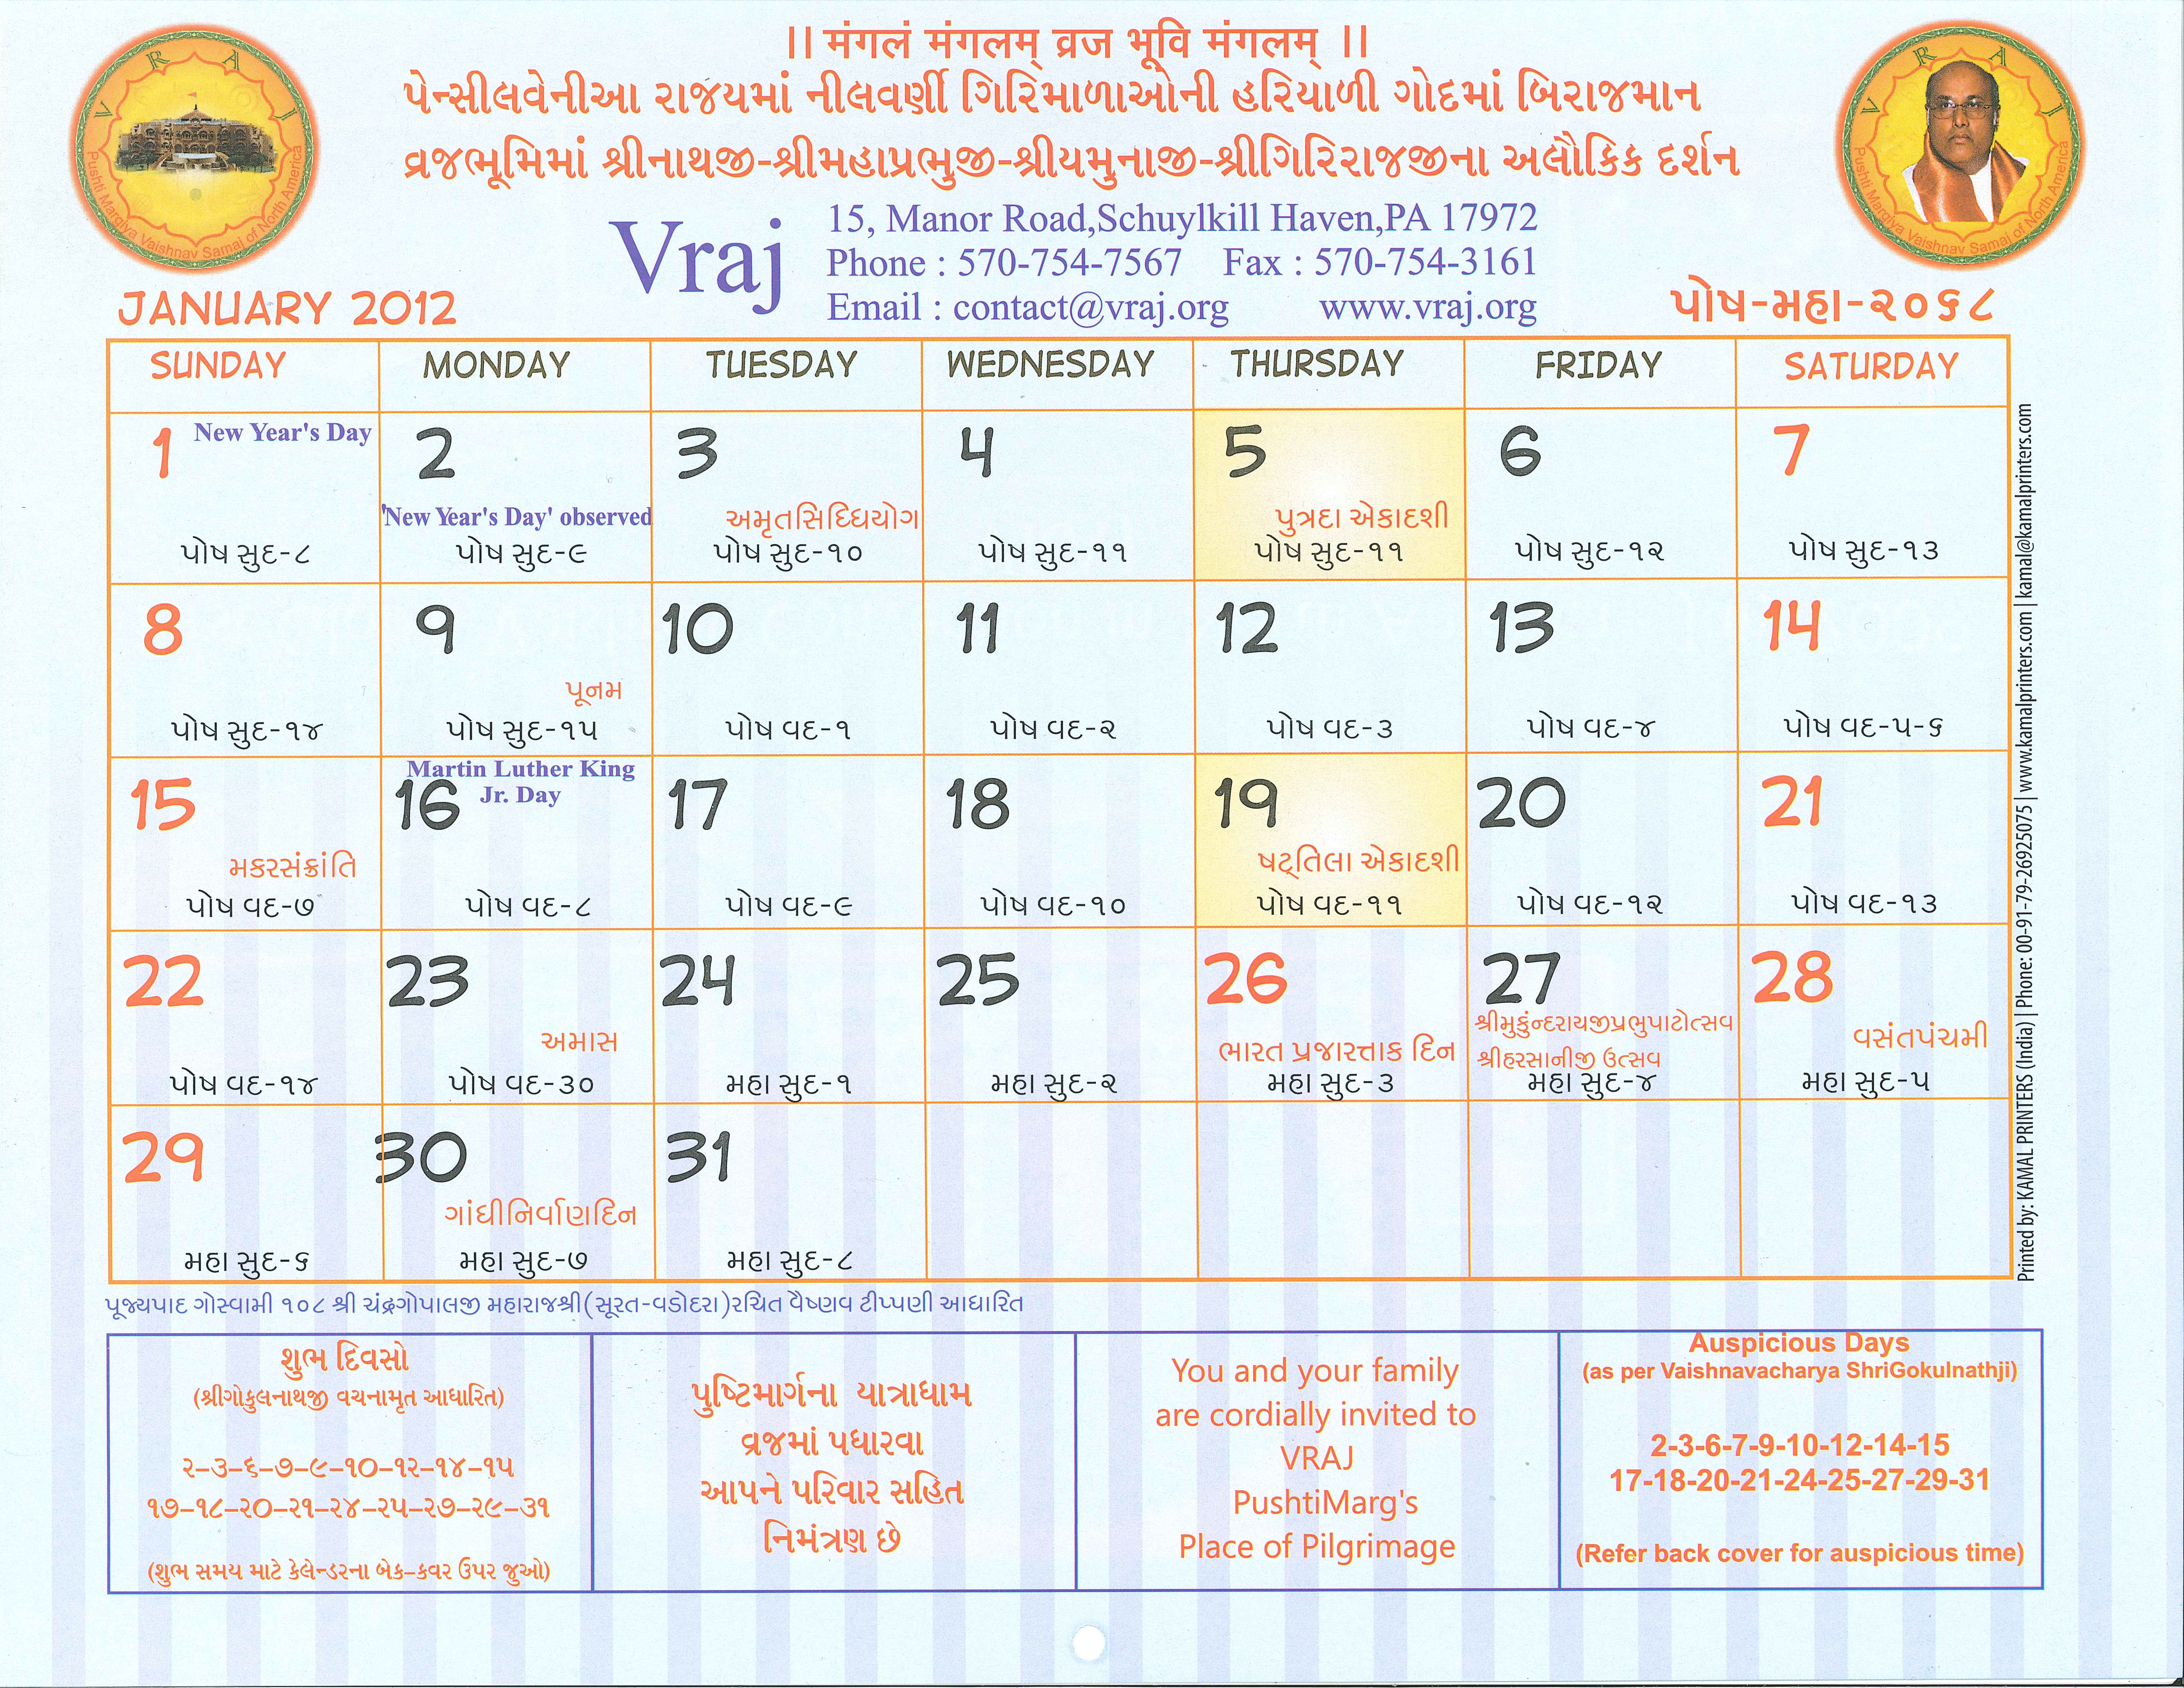 ॥ मंगलं मंगलम् व्रज भूवि मंगलम् ॥
પેન્સીલવેનીઆ રાજ્યમાં નીલવર્ણી ગિરિમાળાઓની હરિયાળી ગોદમાં બિરાજમાન
વ્રજભૂમિમાં શ્રીનાથજી-શ્રીમહાપ્રભુજી-શ્રીયમુનાજી-શ્રીગિરિરાજજીના અલૌકિક દર્શન
V R A J
Pushti Margiya Vaishnav Samaj of North America
V R A J
Pushti Margiya Vaishnav Samaj of North America
Vraj
15, Manor Road,Schuylkill Haven,PA 17972
Phone : 570-754-7567 Fax : 570-754-3161
Email : contact@vraj.org www.vraj.org
JANUARY 2012
પોષ-મહા-૨૦૬૮
SUNDAY MONDAY TUESDAY WEDNESDAY THURSDAY FRIDAY SATURDAY
1 New Year's Day 2 3 4 5 6 7
'New Year's Day' observed અમૃતસિધ્ધિયોગ પુત્રદા એકાદશી
પોષ સુદ-૮ પોષ સુદ-૯ પોષ સુદ-૧૦ પોષ સુદ-૧૧ પોષ સુદ-૧૧ પોષ સુદ-૧૨ પોષ સુદ-૧૩
8 9 10 11 12 13 14
પૂનમ
પોષ સુદ-૧૪ પોષ સુદ-૧૫ પોષ વદ-૧ પોષ વદ-૨ પોષ વદ-૩ પોષ વદ-૪ પોષ વદ-૫-૬
Martin Luther King
Jr. Day
15 16 17 18 19 20 21
મકરસંક્રાંતિ ષટ્તિલા એકાદશી
પોષ વદ-૭ પોષ વદ-૮ પોષ વદ-૯ પોષ વદ-૧૦ પોષ વદ-૧૧ પોષ વદ-૧૨ પોષ વદ-૧૩
22 23 24 25 26 27 28
અમાસ ભારત પ્રજાસ્તાક દિન શ્રીમુકુંન્દરાયજીપ્રભુપાટોત્સવ વસંતપંચમી
શ્રીહરસાનીજી ઉત્સવ
પોષ વદ-૧૪ પોષ વદ-૩૦ મહા સુદ-૧ મહા સુદ-૨ મહા સુદ-૩ મહા સુદ-૪ મહા સુદ-૫
29 30 31
ગાંધીનિર્વાણદિન
મહા સુદ-૬ મહા સુદ-૭ મહા સુદ-૮
Printed by: KAMAL PRINTERS (India) | Phone: 00-91-79-26925075 | www.kamalprinters.com | kamal@kamalprinters.com
પૂજ્યપાદ ગોસ્વામી ૧૦૮ શ્રી ચંદ્રગોપાલજી મહારાજશ્રી(સૂરત-વડોદરા)રચિત વૈષ્ણવ ટીપ્પણી આધારિત
શુભ દિવસો
(શ્રીગોકુલનાથજી વચનામૃત આધારિત)
૨–૩–૬–૭–૯–૧૦–૧૨–૧૪–૧૫
૧૭–૧૮–૨૦–૨૧–૨૪–૨૫–૨૭–૨૯–૩૧
(શુભ સમય માટે કેલેન્ડરના બેક–કવર ઉપર જુઓ)
પુષ્ટિમાર્ગના યાત્રાધામ
વ્રજમાં પધારવા
આપને પરિવાર સહિત
નિમંત્રણ છે
You and your family
are cordially invited to
VRAJ
PushtiMarg's
Place of Pilgrimage
Auspicious Days
(as per Vaishnavacharya ShriGokulnathji)
2-3-6-7-9-10-12-14-15
17-18-20-21-24-25-27-29-31
(Refer back cover for auspicious time)